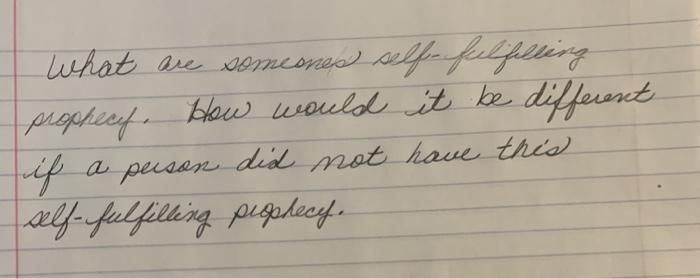 What are someones self-fulfilling
prophecy. How would it be different
if a person did not have this
self-fulfilling prophecy.